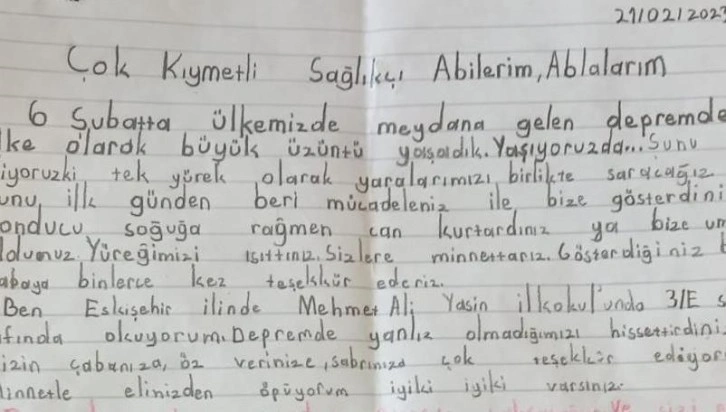 21/02/2023
Çok Kıymetli Sağlıkçı Abilerim, Ablalarım
6 Şubatta ülkemizde meydana gelen depremde
lke olarak büyük üzüntü yaşadık. Yaşıyoruzda... Şunu
iyoruzki tek yürek olarak yaralarımızı birlikte saracağız
unu ilk günden beri mücadeleniz ile bize gösterdini
onducu soğuğa rağmen can kurtardınız ya bize um
ldunuz. Yüreğimizi ısıttınız. Sizlere minnettarız. Gösterdiğiniz
abaya binlerce kez teşekkür ederiz.
Ben Eskişehir ilinde Mehmet Ali Yasin ilkokul'unda 3/E s
ıfında okuyorum. Depremde yanlız olmadığımızı hissettirdini
izin çabanıza, öz verinize, sabrınıza çok teşekkür ediyor
innetle elinizden öpüyorum iyiki iyiki varsınız.